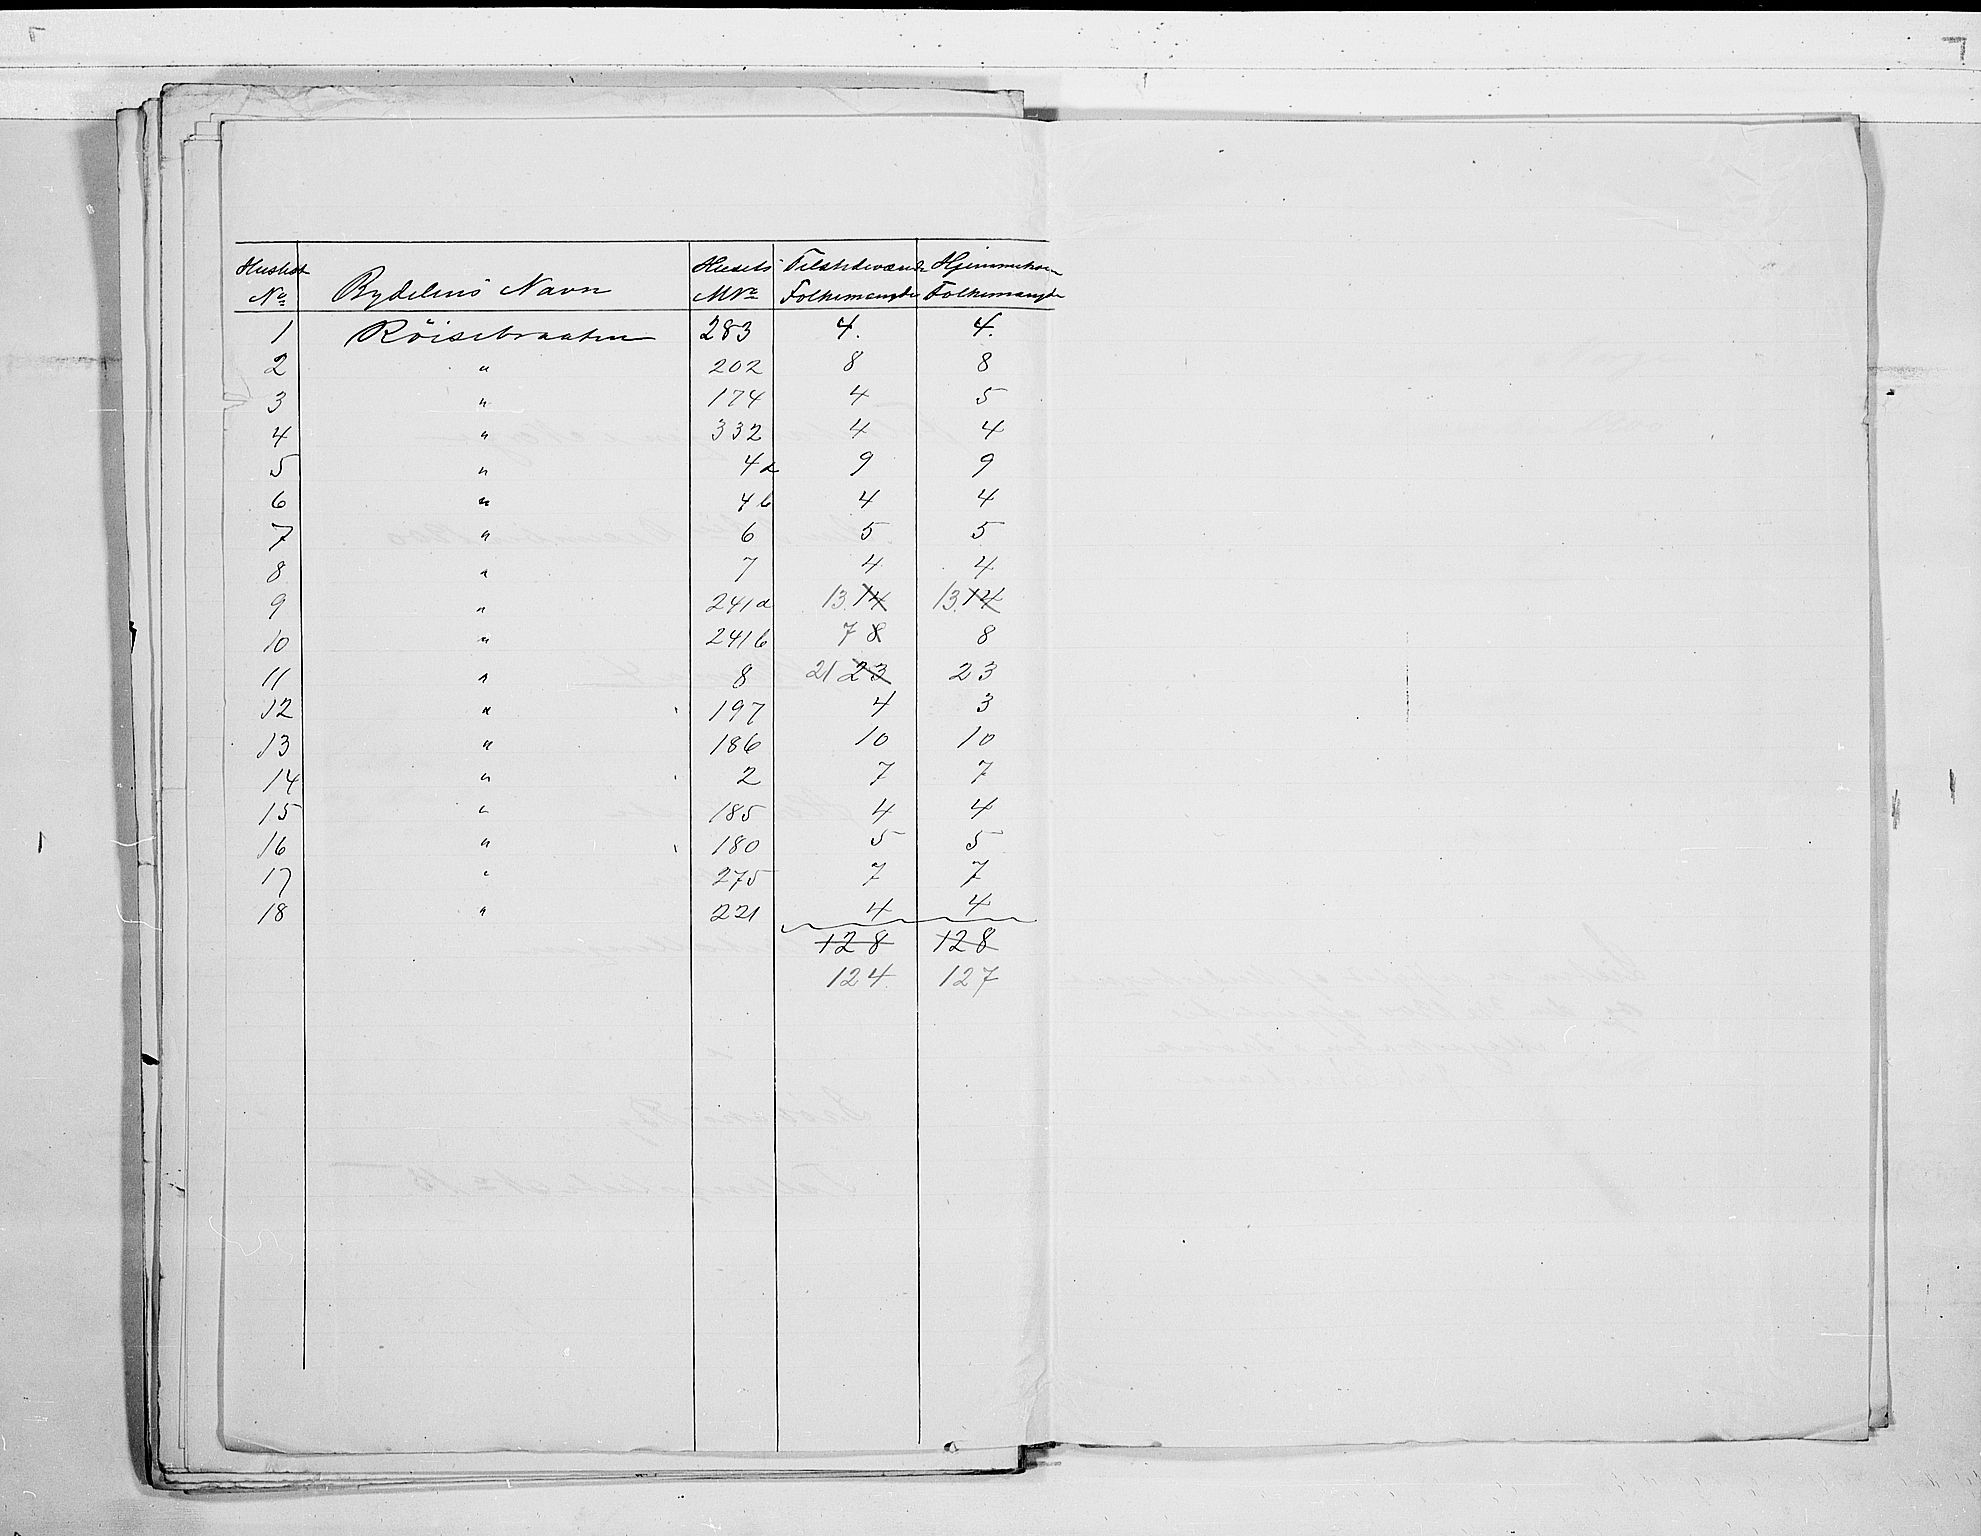 Huslist Bydelens Navn Husets Tilstedevær. Hjemmehør.
No. MNo. Folkemængde Folkemængde
1 Röisebraaten 283 4. 4.
2 " 202 8 8
3 " 174 4 5
4 " 332 4 4
5 " 4a 9 9
6 " 4b 4 4
7 " 6 5 5
8 " 7 4 4
9 " 241a 13. 14 13. 14
10 " 241b 7 8 8
11 " 8 21 23 23
12 " 197 4 3
13 " 186 10 10
14 " 2 7 7
15 " 185 4 4
16 " 180 5 5
17 " 275 7 7
18 " 221 4 4
128 128
124 127